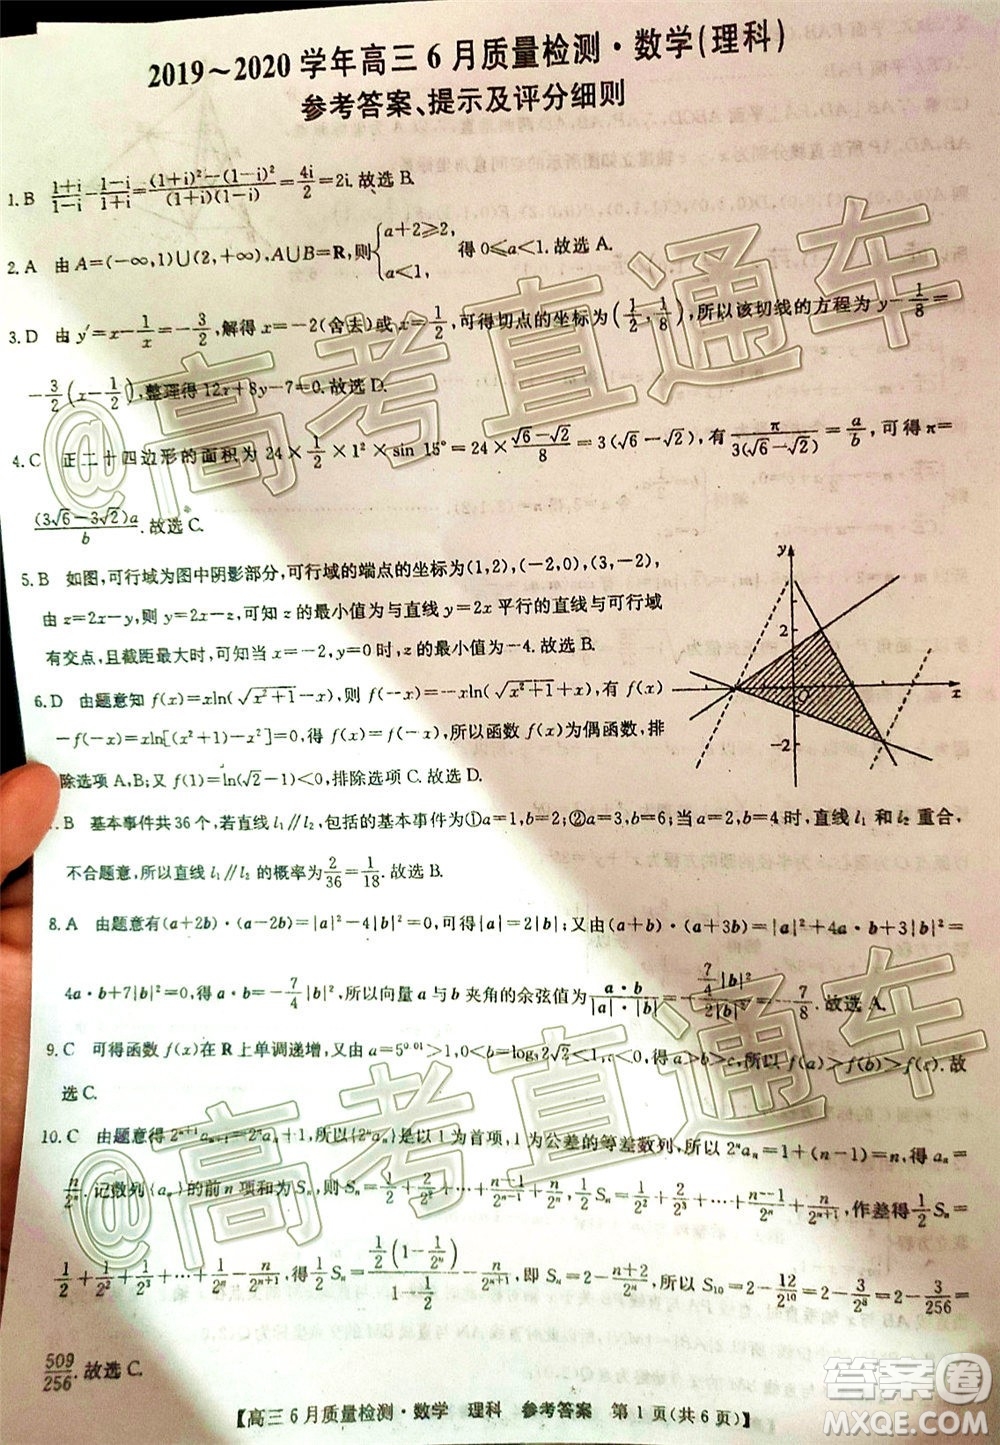 2019～2020 学年高三 6 月质量检测·数学(理科)
参考答案、提示及评分细则
1. B (1+i)/(1−i) − (1−i)/(1+i) = ((1+i)²−(1−i)²)/((1+i)(1−i)) = 4i/2 = 2i. 故选 B.
2. A 由 A=(−∞,1)∪(2,+∞), A∪B=R, 则 {a+2≥2, a<1, 得 0≤a<1. 故选 A.
3. D 由 y′=x−1/x=−3/2, 解得 x=−2(舍去)或 x=1/2, 可得切点的坐标为(1/2, 1/8), 所以该切线的方程为 y−1/8=
−3/2(x−1/2), 整理得 12x+8y−7=0. 故选 D.
4. C 正二十四边形的面积为 24×1/2×1²×sin 15°=24×(√6−√2)/8=3(√6−√2), 有 π/(3(√6−√2))=a/b, 可得 π=
(3√6−3√2)a/b. 故选 C.
5. B 如图, 可行域为图中阴影部分, 可行域的端点的坐标为(1,2), (−2,0), (3,−2),
由 z=2x−y, 可知 z 的最小值为与直线 y=2x 平行的直线与可行域
有交点, 且截距最大时, 可得当 x=−2, y=0 时, z 的最小值为−4. 故选 B.
y
2
O
x
−2
6. D 由题意知 f(x)=xln(√(x²+1)−x), 则 f(−x)=−xln(√(x²+1)+x), 有 f(x)
−f(−x)=xln[(x²+1)−x²]=0, 得 f(−x)=f(x), 所以函数 f(x)为偶函数, 排
除选项 A,B; 又 f(1)=ln(√2−1)<0, 排除选项 C. 故选 D.
. B 基本事件共 36 个, 若直线 l₁∥l₂, 包括的基本事件为①a=1,b=2; ②a=3,b=6; 当 a=2,b=4 时, 直线 l₁ 和 l₂ 重合,
不合题意, 所以直线 l₁∥l₂ 的概率为 2/36=1/18. 故选 B.
8. A 由题意有(a+2b)·(a−2b)=|a|²−4|b|²=0, 可得|a|=2|b|; 又由(a+b)·(a+3b)=|a|²+4a·b+3|b|²=
4a·b+7|b|²=0, 得 a·b=−7/4|b|², 所以向量 a 与 b 夹角的余弦值为 a·b/(|a|·|b|)=−(7/4|b|²)/(2|b|²)=−7/8. 故选 A.
9. C 可得函数 f(x)在 R 上单调递增, 又由 a=5^0.01>1, 0<b=log₃2√2<1, c<0, 得 a>b>c, 所以 f(a)>f(b)>f(c). 故
选 C.
10. C 由题意得 2ⁿ⁺¹aₙ₊₁=2ⁿaₙ+1, 所以{2ⁿaₙ}是以 1 为首项, 1 为公差的等差数列, 所以 2ⁿaₙ=1+(n−1)=n, aₙ=
n/2ⁿ. 记数列{aₙ}的前 n 项和为 Sₙ, 则 Sₙ=1/2+2/2²+⋯+n/2ⁿ, 1/2Sₙ=1/2²+2/2³+⋯+(n−1)/2ⁿ+n/2ⁿ⁺¹, 作差得 1/2Sₙ=
1/2+1/2²+1/2³+⋯+1/2ⁿ−n/2ⁿ⁺¹, 得 Sₙ=(1/2(1−1/2ⁿ))/(1−1/2)... 即 Sₙ=2−(n+2)/2ⁿ, 所以 S₁₀=2−12/2¹⁰=2−3/2⁸=2−3/256=
509/256. 故选 C.
【高三 6 月质量检测·数学 理科 参考答案 第 1 页(共 6 页)】
@高考直通车
@高考直通车
答案卷
MXQE.COM